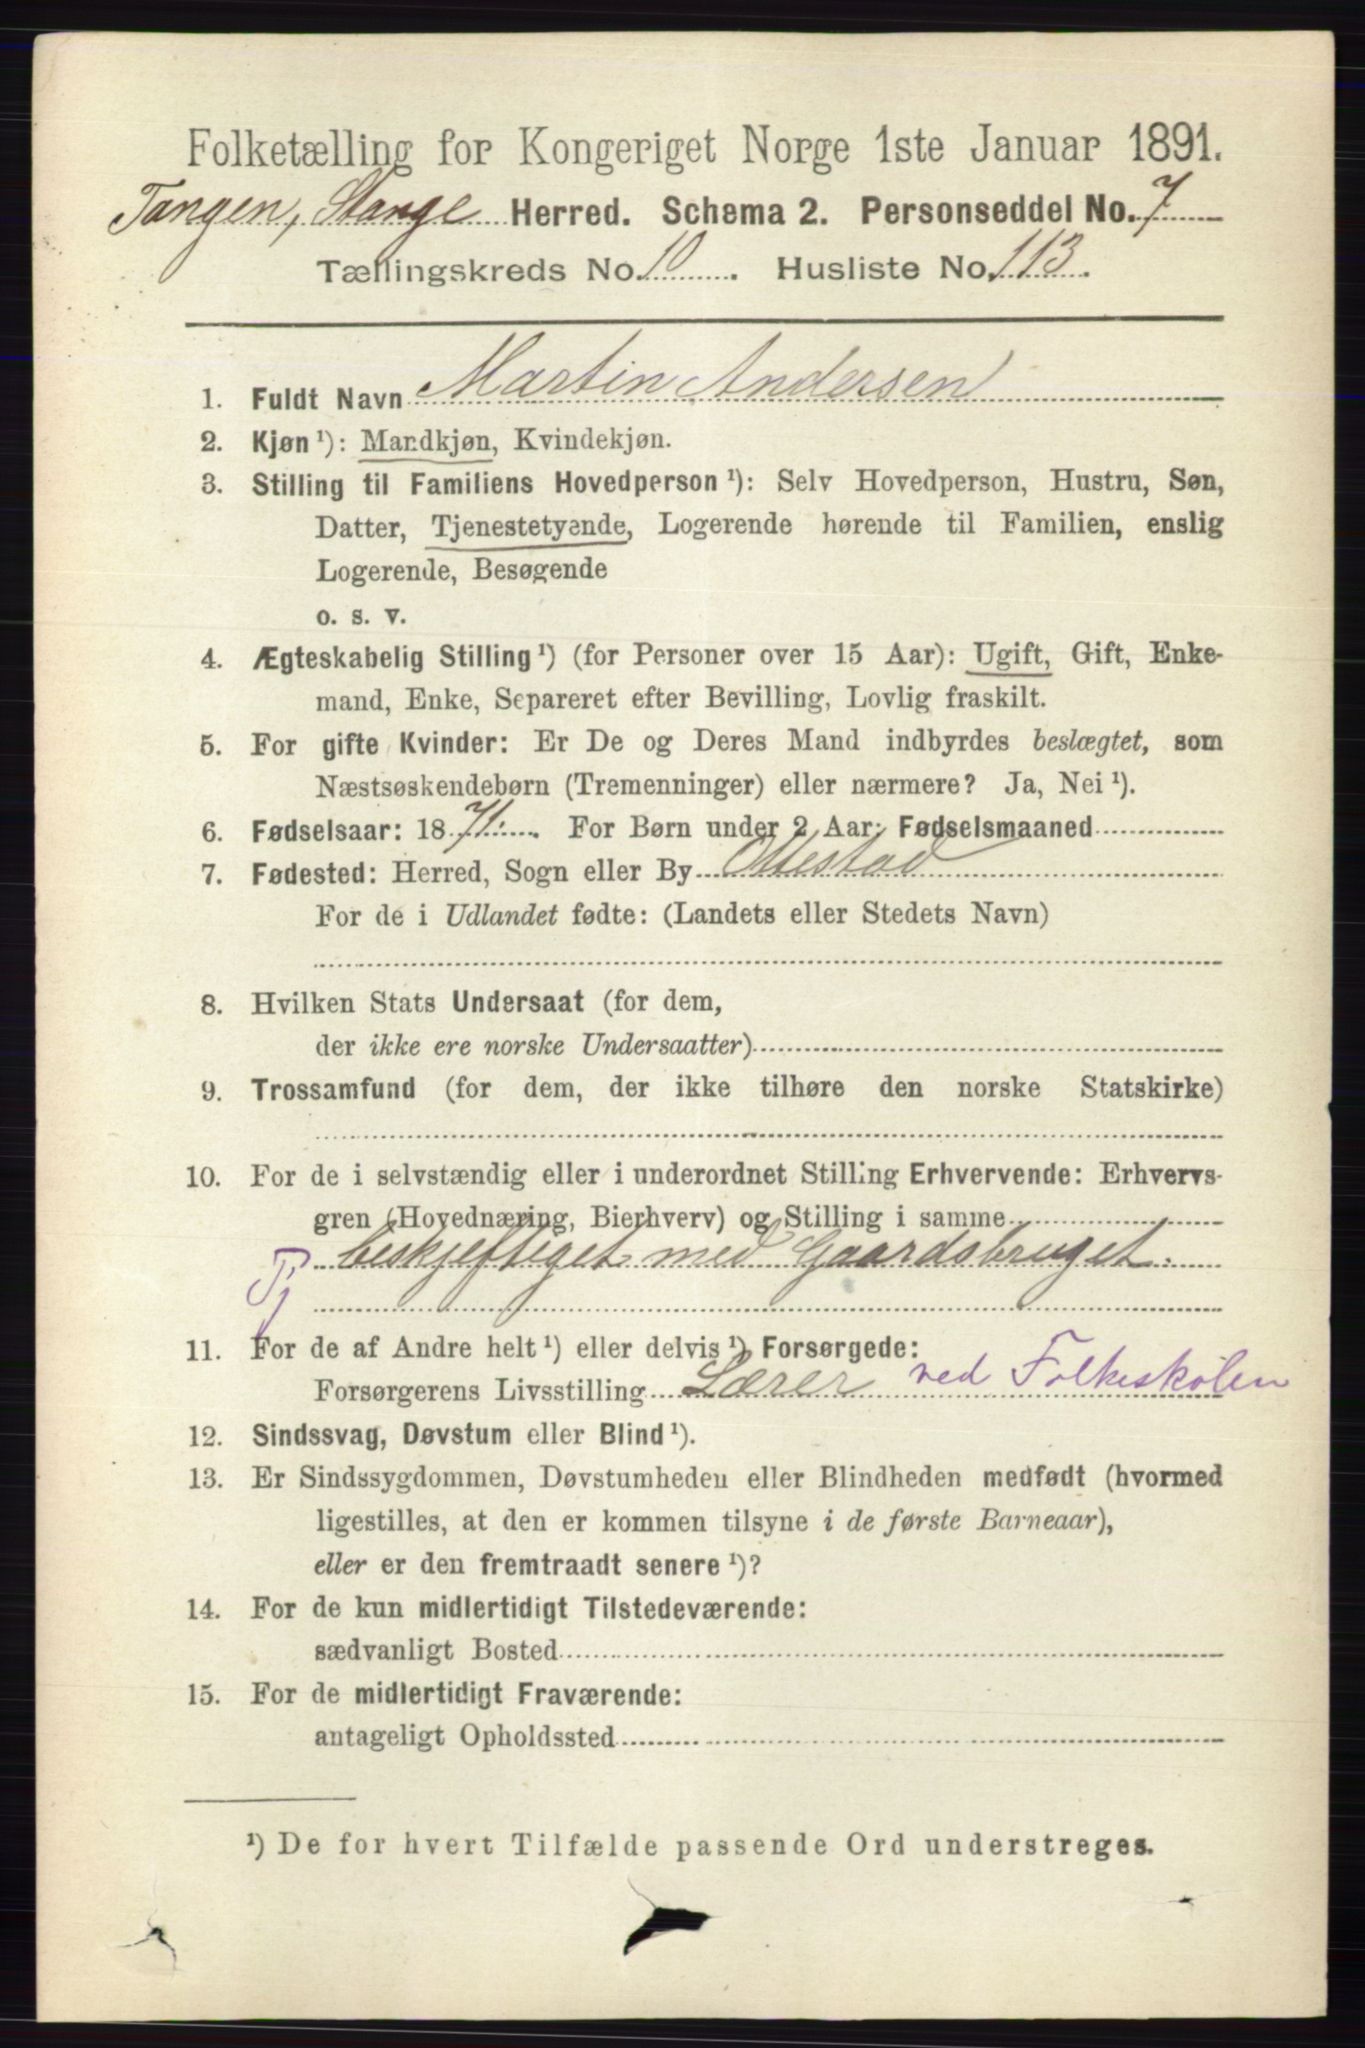 Folketælling for Kongeriget Norge 1ste Januar 1891.
Tangen, Stange Herred. Schema 2. Personseddel No. 7
Tællingskreds No. 10. Husliste No. 113.
1. Fuldt Navn Martin Andersen
2. Kjøn ¹): Mandkjøn, Kvindekjøn.
3. Stilling til Familiens Hovedperson ¹): Selv Hovedperson, Hustru, Søn,
Datter, Tjenestetyende, Logerende hørende til Familien, enslig
Logerende, Besøgende
o. s. v.
4. Ægteskabelig Stilling ¹) (for Personer over 15 Aar): Ugift, Gift, Enke-
mand, Enke, Separeret efter Bevilling, Lovlig fraskilt.
5. For gifte Kvinder: Er De og Deres Mand indbyrdes beslægtet, som
Næstsøskendebørn (Tremenninger) eller nærmere? Ja, Nei ¹).
6. Fødselsaar: 1871. For Børn under 2 Aar: Fødselsmaaned
7. Fødested: Herred, Sogn eller By Ottestad
For de i Udlandet fødte: (Landets eller Stedets Navn)
8. Hvilken Stats Undersaat (for dem,
der ikke ere norske Undersaatter)
9. Trossamfund (for dem, der ikke tilhøre den norske Statskirke)
10. For de i selvstændig eller i underordnet Stilling Erhvervende: Erhvervs-
gren (Hovednæring, Bierhverv) og Stilling i samme
Tj beskjeftiget med Gaardsbruget.
11. For de af Andre helt ¹) eller delvis ¹) Forsørgede:
Forsørgerens Livsstilling Lærer ved Folkeskolen
12. Sindssvag, Døvstum eller Blind ¹).
13. Er Sindssygdommen, Døvstumheden eller Blindheden medfødt (hvormed
ligestilles, at den er kommen tilsyne i de første Barneaar),
eller er den fremtraadt senere ¹)?
14. For de kun midlertidigt Tilstedeværende:
sædvanligt Bosted
15. For de midlertidigt Fraværende:
antageligt Opholdssted
¹) De for hvert Tilfælde passende Ord understreges.